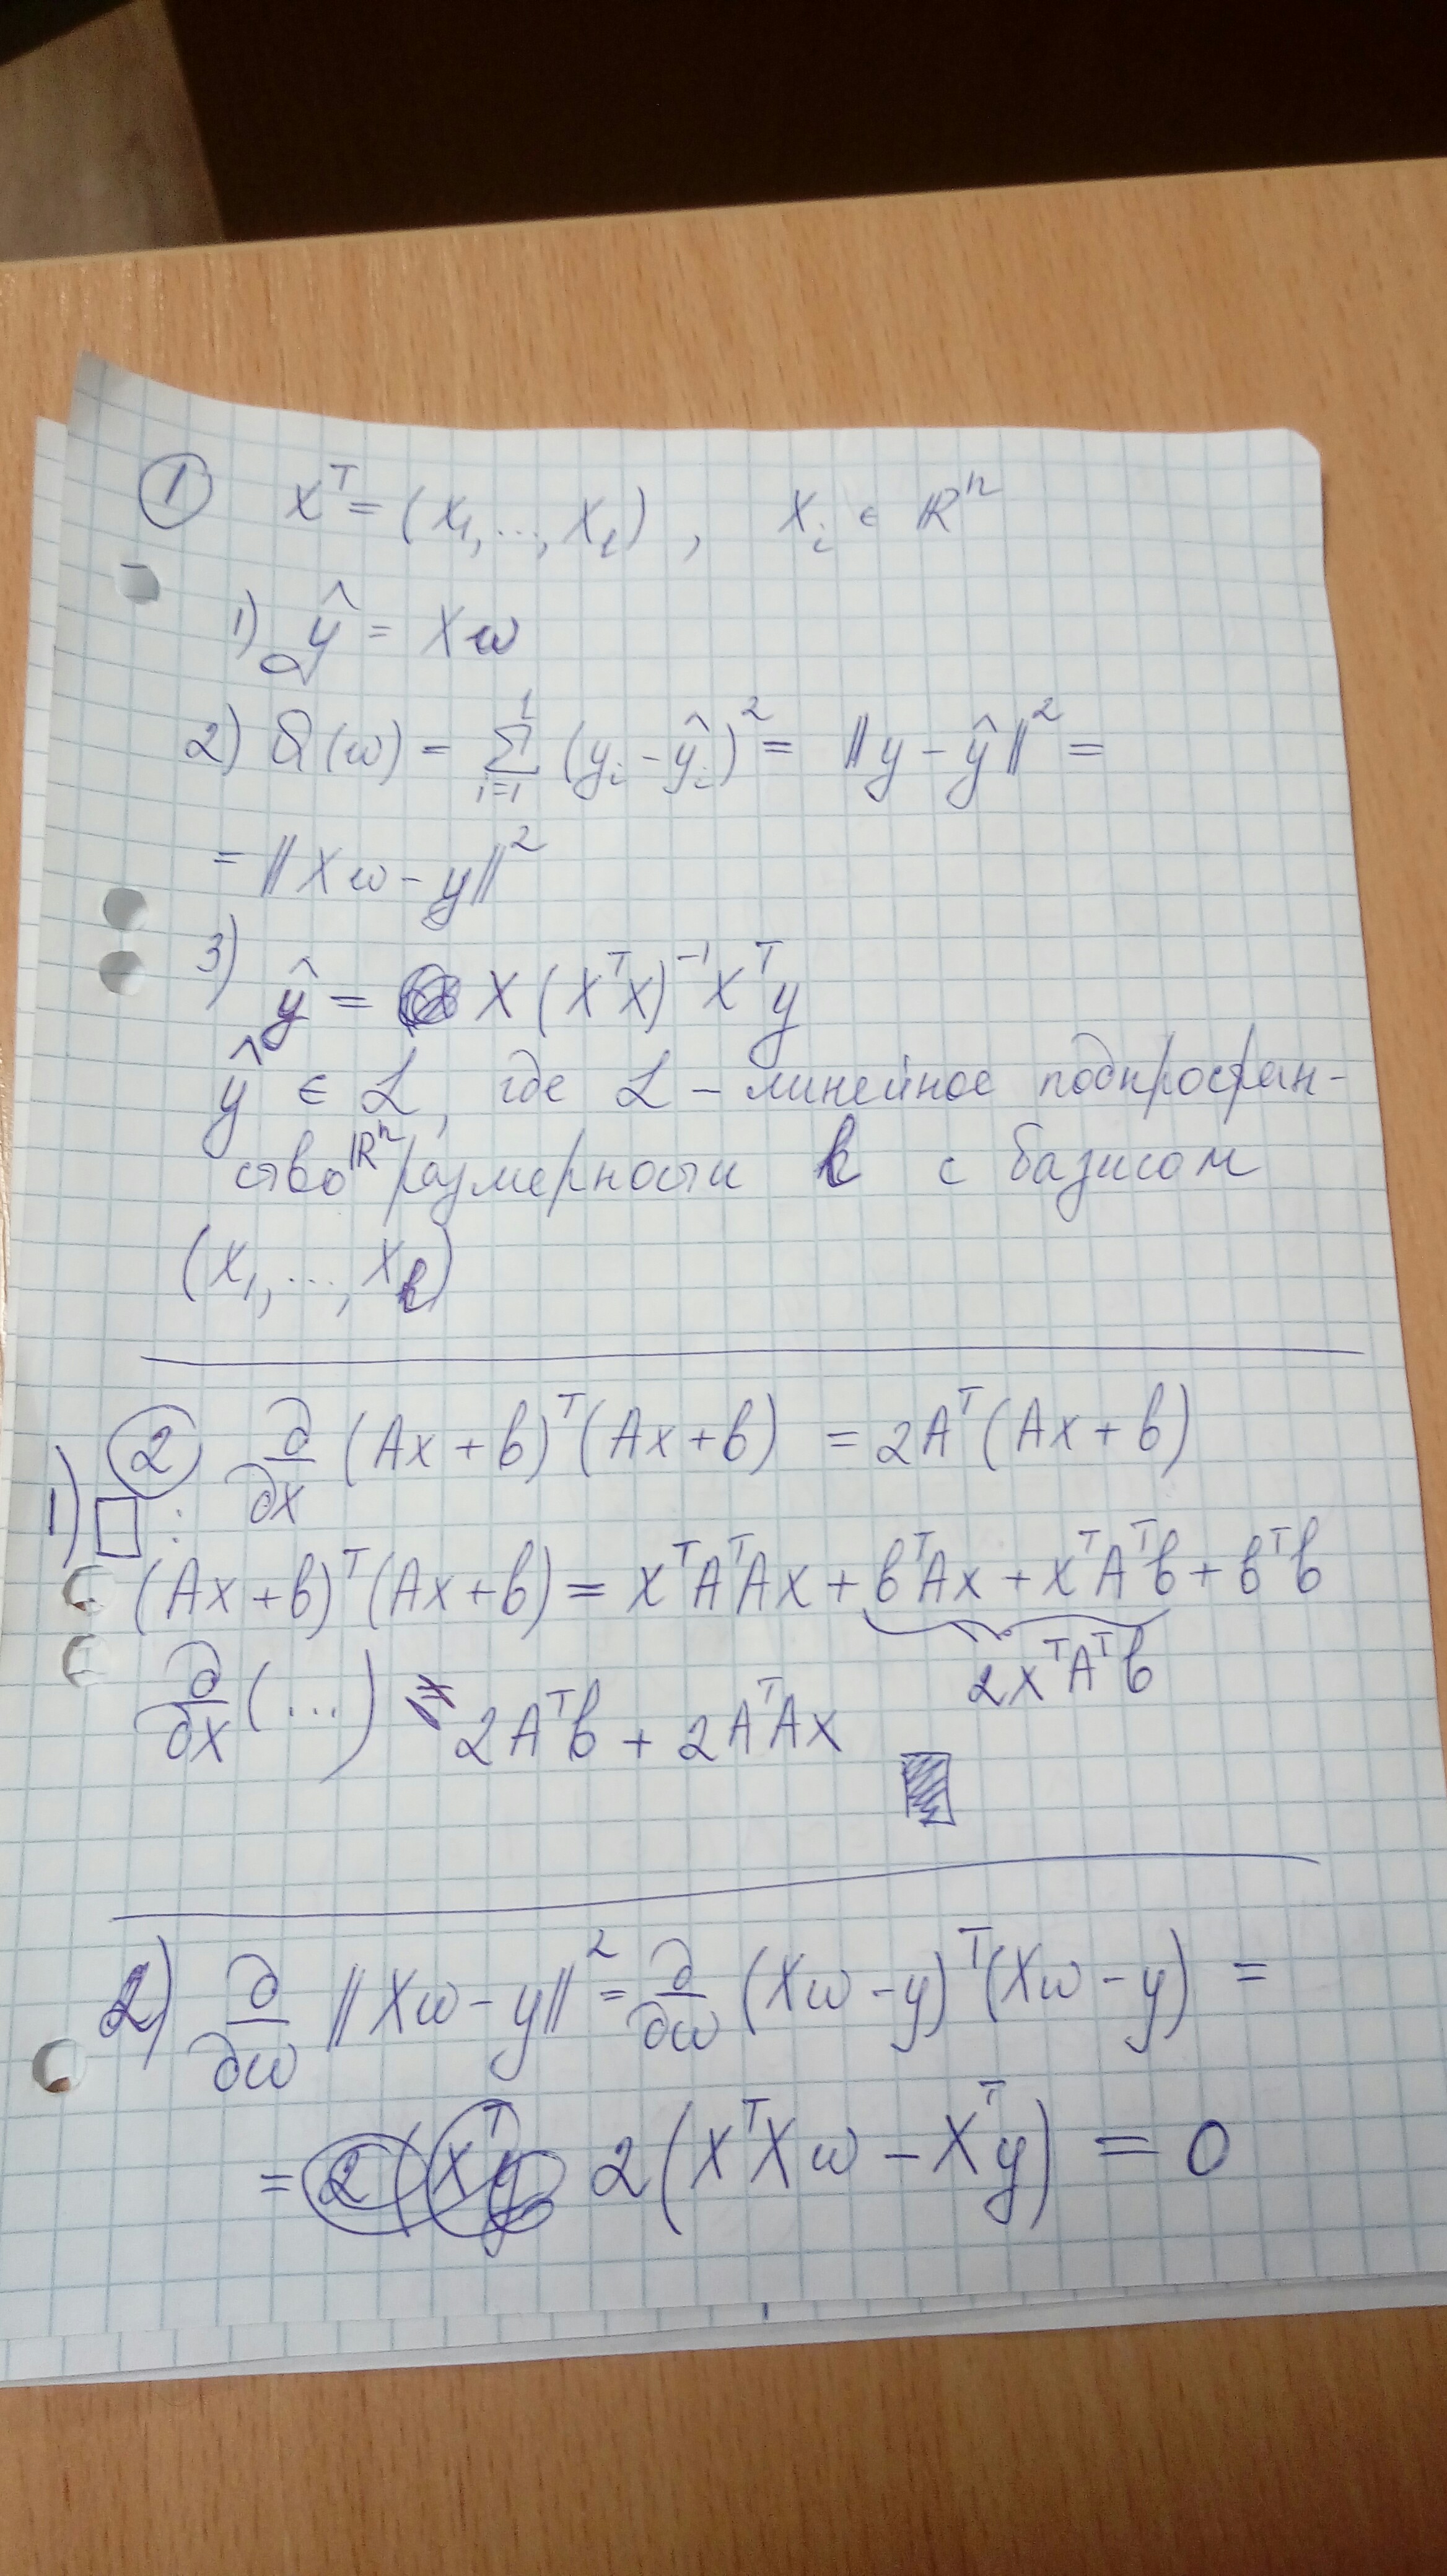 ① X^T = (x_1, ..., x_l), x_i ∈ ℝ^n
1) ŷ = Xw
2) Q(w) = Σ_{i=1}^{l} (y_i - ŷ_i)^2 = ||y - ŷ||^2 =
= ||Xw - y||^2
3)
ŷ = X(X^T X)^{-1} X^T y
ŷ ∈ L, где L - линейное подпростран-
ство ℝ^n размерности k с базисом
(x_1, ..., x_k)
② ∂/∂x (Ax + b)^T (Ax + b) = 2A^T (Ax + b)
1) □ :
(Ax + b)^T (Ax + b) = x^T A^T A x + b^T A x + x^T A^T b + b^T b
2x^T A^T b
∂/∂x (...) = 2A^T b + 2A^T A x
2) ∂/∂w ||Xw - y||^2 = ∂/∂w (Xw - y)^T (Xw - y) =
= 2(X^T X w - X^T y) = 0